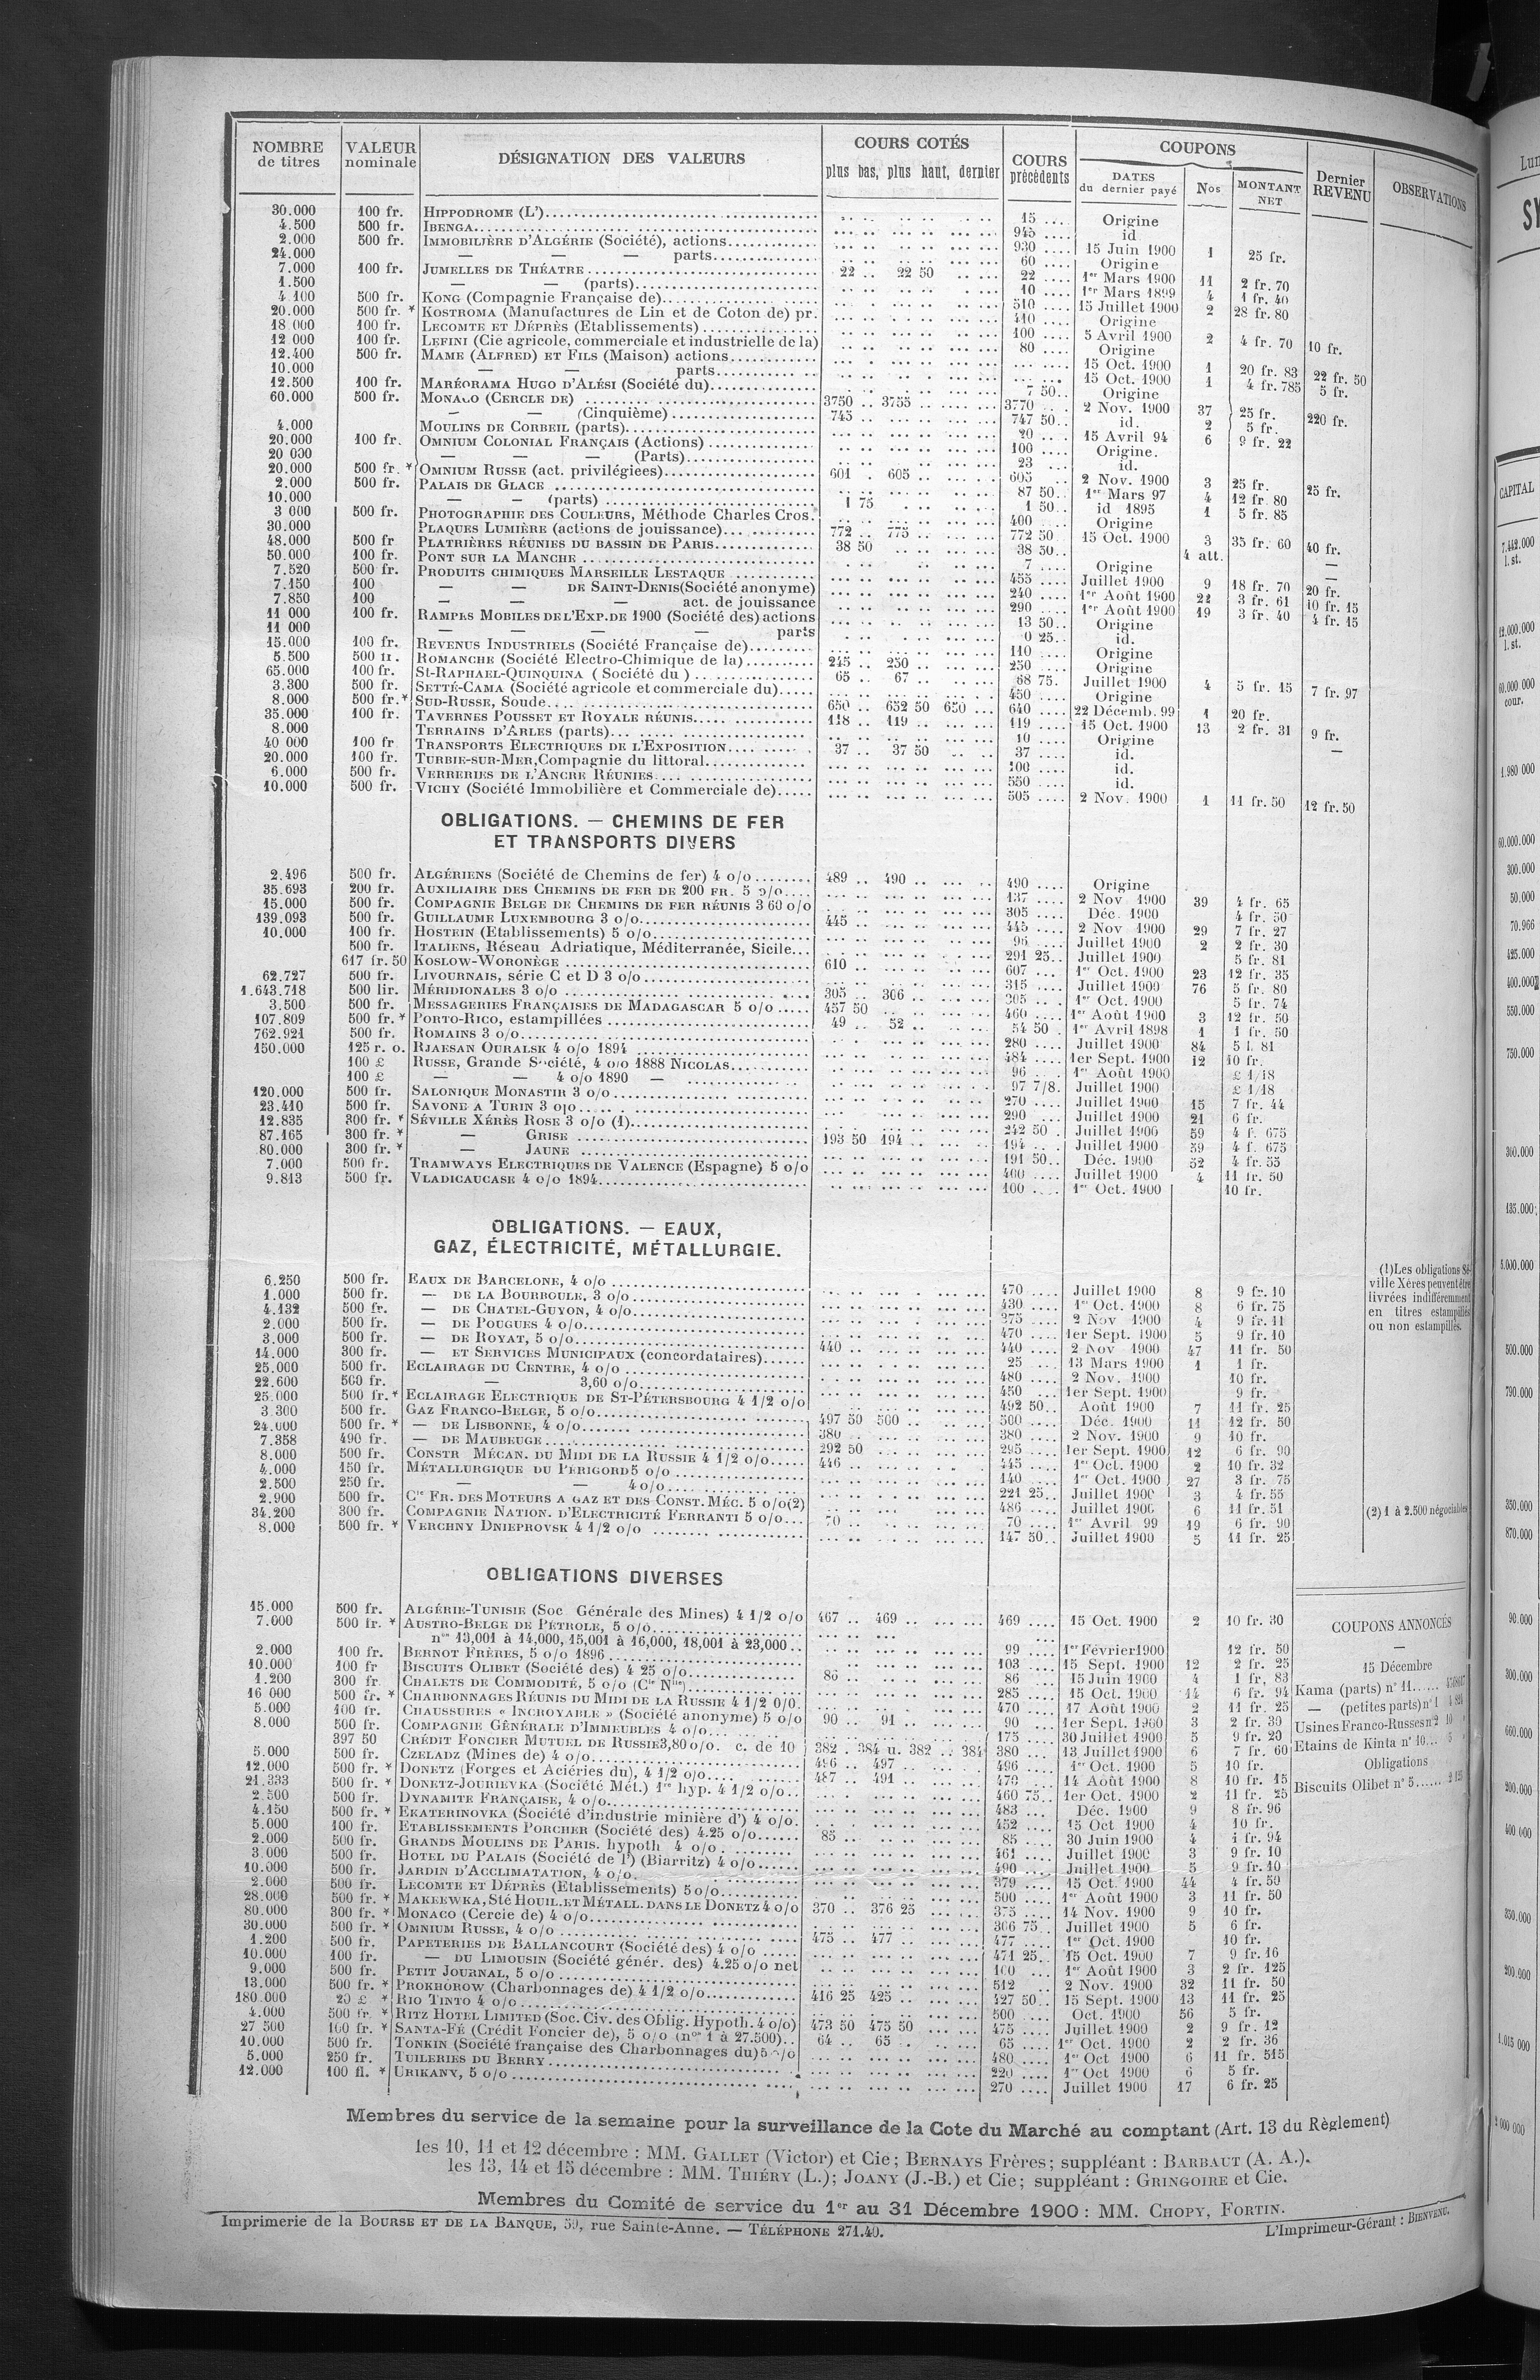 NOMBRE de titres | VALEUR nominale | DÉSIGNATION DES VALEURS | COURS COTÉS plus bas, plus haut, dernier | COURS précédents | COUPONS DATES du dernier payé | Nos | MONTANT NET | Dernier REVENU | OBSERVATIONS
30.000 100 fr. HIPPODROME (L') 15 .... Origine
4.500 500 fr. IBENGA 945 .... id
2.000 500 fr. IMMOBILIÈRE D'ALGÉRIE (Société), actions 930 .... 15 Juin 1900 1 25 fr.
24.000 — — — parts 60 .... Origine
7.000 100 fr. JUMELLES DE THÉATRE 22 .. 22 50 22 .... 1er Mars 1900 11 2 fr. 70
1.500 — — (parts) 10 .... 1er Mars 1899 4 1 fr. 40
4.100 500 fr. KONG (Compagnie Française de) 510 .... 15 Juillet 1900 2 28 fr. 80
20.000 500 fr. * KOSTROMA (Manufactures de Lin et de Coton de) pr. 410 .... Origine
18 000 100 fr. LECOMTE ET DÉPRÈS (Etablissements) 100 .... 5 Avril 1900 2 4 fr. 70 10 fr.
12 000 100 fr. LEFINI (Cie agricole, commerciale et industrielle de la) 80 .... Origine
12.400 500 fr. MAME (ALFRED) ET FILS (Maison) actions 15 Oct. 1900 1 20 fr. 83 22 fr. 50
10.000 — — parts 15 Oct. 1900 1 4 fr. 785 5 fr.
12.500 100 fr. MARÉORAMA HUGO D'ALÉSI (Société du) 7 50.. Origine
60.000 500 fr. MONACO (CERCLE DE) 3750 .. 3755 3770 2 Nov. 1900 37 25 fr. 220 fr.
— — (Cinquième) 745 747 50.. id. 2 5 fr.
4.000 MOULINS DE CORBEIL (parts) 20 15 Avril 94 6 9 fr. 22
20.000 100 fr. OMNIUM COLONIAL FRANÇAIS (Actions) 100 .... Origine.
20 000 — — — (Parts) 23 id.
20.000 500 fr. * OMNIUM RUSSE (act. privilégiees) 601 . 605 605 2 Nov. 1900 3 25 fr. 25 fr.
2.000 500 fr. PALAIS DE GLACE 87 50.. 1er Mars 97 4 12 fr. 80
10.000 — — (parts) 1 75 1 50.. id 1895 1 5 fr. 85
3 000 500 fr. PHOTOGRAPHIE DES COULEURS, Méthode Charles Cros. 400 .... Origine
30.000 PLAQUES LUMIÈRE (actions de jouissance) 772 .. 775 772 50 15 Oct. 1900 3 35 fr. 60 40 fr.
48.000 500 fr PLATRIÈRES RÉUNIES DU BASSIN DE PARIS 38 50 38 50.. 4 att. —
50.000 100 fr. PONT SUR LA MANCHE 7 .... Origine —
7.520 500 fr. PRODUITS CHIMIQUES MARSEILLE LESTAQUE 455 .... Juillet 1900 9 18 fr. 70 20 fr.
7.150 100 — — DE SAINT-DENIS (Société anonyme) 240 .... 1er Août 1900 22 3 fr. 61 10 fr. 15
7.850 100 — — — act. de jouissance 290 .... 1er Août 1900 19 3 fr. 40 4 fr. 15
11 000 100 fr. RAMPES MOBILES DE L'EXP. DE 1900 (Société des) actions 13 50.. Origine
11 000 — — — — parts 0 25.. id.
15.000 100 fr. REVENUS INDUSTRIELS (Société Française de) 110 .... Origine
5.500 500 fr. ROMANCHE (Société Electro-Chimique de la) 245 .. 250 250 .... Origine
65.000 100 fr. St-RAPHAEL-QUINQUINA (Société du) 65 .. 67 68 75. Juillet 1900 4 5 fr. 15 7 fr. 97
3.300 500 fr. SETTÉ-CAMA (Société agricole et commerciale du) 450 .... Origine
8.000 500 fr. * SUD-RUSSE, Soude 650 .. 652 50 650 640 .... 22 Décemb. 99 1 20 fr.
35.000 100 fr. TAVERNES POUSSET ET ROYALE RÉUNIS 118 .. 119 119 .... 15 Oct. 1900 13 2 fr. 31 9 fr.
8.000 TERRAINS D'ARLES (parts) 10 .... Origine —
40 000 100 fr TRANSPORTS ELECTRIQUES DE L'EXPOSITION 37 .. 37 50 37 .... id.
20.000 100 fr. TURBIE-SUR-MER, Compagnie du littoral 100 .... id.
6.000 500 fr. VERRERIES DE L'ANCRE RÉUNIES 550 .... id.
10.000 500 fr. VICHY (Société Immobilière et Commerciale de) 505 .... 2 Nov. 1900 1 11 fr. 50 12 fr. 50
OBLIGATIONS. — CHEMINS DE FER
ET TRANSPORTS DIVERS
2.496 500 fr. ALGÉRIENS (Société de Chemins de fer) 4 o/o 489 .. 490 490 .... Origine
35.693 200 fr. AUXILIAIRE DES CHEMINS DE FER DE 200 FR. 5 o/o 137 .... 2 Nov 1900 39 4 fr. 65
15.000 500 fr. COMPAGNIE BELGE DE CHEMINS DE FER RÉUNIS 3 60 o/o 305 .... Déc. 1900 4 fr. 50
139.093 500 fr. GUILLAUME LUXEMBOURG 3 o/o 445 445 .... 2 Nov 1900 29 7 fr. 27
10.000 100 fr. HOSTEIN (Etablissements) 5 o/o 96 .... Juillet 1900 2 2 fr. 30
500 fr. ITALIENS, Réseau Adriatique, Méditerranée, Sicile 291 25.. Juillet 1900 5 fr. 81
617 fr. 50 KOSLOW-WORONÈGE 610 607 ... 1er Oct. 1900 23 12 fr. 35
62.727 500 fr. LIVOURNAIS, série C et D 3 o/o 315 .... Juillet 1900 76 5 fr. 80
1.643.718 500 lir. MÉRIDIONALES 3 o/o 305 .. 306 305 .. . 1er Oct. 1900 5 fr. 74
3.500 500 fr. MESSAGERIES FRANÇAISES DE MADAGASCAR 5 o/o 457 50 460 .... 1er Août 1900 3 12 fr. 50
107.809 500 fr. * PORTO-RICO, estampillées 49 .. 52 54 50 . 1er Avril 1898 1 1 fr. 50
762.921 500 fr. ROMAINS 3 o/o 280 .... Juillet 1900 84 5 l. 81
150.000 125 r. o. RJAESAN OURALSK 4 o/o 1894 484 .... 1er Sept. 1900 12 10 fr.
100 £ RUSSE, Grande Société, 4 o/o 1888 NICOLAS 96 1er Août 1900 £ 1/18
100 £ — — 4 o/o 1890 — 97 7/8. Juillet 1900 £ 1/18
120.000 500 fr. SALONIQUE MONASTIR 3 o/o 270 .... Juillet 1900 15 7 fr. 44
23.410 500 fr. SAVONE A TURIN 3 o/o 290 .... Juillet 1900 21 6 fr.
12.835 300 fr. * SÉVILLE XÉRÈS ROSE 3 o/o (1) 242 50 . Juillet 1900 59 4 f. 675
87.165 300 fr. * — GRISE 193 50 194 194 .. . Juillet 1900 59 4 f. 675
80.000 300 fr. * — JAUNE 191 50.. Déc. 1900 52 4 fr. 55
7.000 500 fr. TRAMWAYS ELECTRIQUES DE VALENCE (Espagne) 5 o/o 460 .... Juillet 1900 4 11 fr. 50
9.813 500 fr. VLADICAUCASE 4 o/o 1894 100 .... 1er Oct. 1900 10 fr.
OBLIGATIONS. — EAUX,
GAZ, ÉLECTRICITÉ, MÉTALLURGIE.
6.250 500 fr. EAUX DE BARCELONE, 4 o/o 470 .... Juillet 1900 8 9 fr. 10
1.000 500 fr. — DE LA BOURBOULE, 3 o/o 430 .... 1er Oct. 1900 8 6 fr. 75
4.132 500 fr. — DE CHATEL-GUYON, 4 o/o 375 .... 2 Nov 1900 4 9 fr. 11
2.000 500 fr. — DE POUGUES 4 o/o 470 .... 1er Sept. 1900 5 9 fr. 10
3.000 500 fr. — DE ROYAT, 5 o/o 440 440 .... 2 Nov 1900 47 11 fr. 50
14.000 300 fr. — ET SERVICES MUNICIPAUX (concordataires) 25 .... 13 Mars 1900 1 1 fr.
25.000 500 fr. ECLAIRAGE DU CENTRE, 4 o/o 480 .... 2 Nov. 1900 10 fr.
22.600 500 fr. — 3,60 o/o 450 ... 1er Sept. 1900 9 fr.
25.000 500 fr. * ECLAIRAGE ELECTRIQUE DE ST-PÉTERSBOURG 4 1/2 o/o 492 50.. Août 1900 7 11 fr. 25
3.300 500 fr. GAZ FRANCO-BELGE, 5 o/o 497 50 500 500 .... Déc. 1900 11 12 fr. 50
24.000 500 fr. * — DE LISBONNE, 4 o/o 380 380 .... 2 Nov. 1900 9 10 fr.
7.358 490 fr. — DE MAUBEUGE 292 50 295 .... 1er Sept. 1900 12 6 fr. 90
8.000 500 fr. CONSTR MÉCAN. DU MIDI DE LA RUSSIE 4 1/2 o/o 446 445 .... 1er Oct. 1900 2 10 fr. 32
4.000 150 fr. MÉTALLURGIQUE DU PÉRIGORD 5 o/o 140 .... 1er Oct. 1900 27 3 fr. 75
2.500 250 fr. — — 4 o/o 221 25.. Juillet 1900 3 4 fr. 55
2.900 500 fr. Cie FR. DES MOTEURS A GAZ ET DES CONST. MÉC. 5 o/o (2) 486 .... Juillet 1900 6 11 fr. 51
34.200 300 fr. COMPAGNIE NATION. D'ELECTRICITÉ FERRANTI 5 o/o 70 70 .... 1er Avril 99 19 6 fr. 90
8.000 500 fr. * VERCHNY DNIEPROVSK 4 1/2 o/o 147 50.. Juillet 1900 5 11 fr. 25
(1) Les obligations Sé-
ville Xérès peuvent être
livrées indifféremment
en titres estampillés
ou non estampillés.
(2) 1 à 2.500 négociables
OBLIGATIONS DIVERSES
15.000 500 fr. ALGÉRIE-TUNISIE (Soc Générale des Mines) 4 1/2 o/o 467 .. 469 469 .... 15 Oct. 1900 2 10 fr. 30
7.000 500 fr. * AUSTRO-BELGE DE PÉTROLE, 5 o/o
nos 13,001 à 14,000, 15,001 à 16,000, 18,001 à 23,000 99 .... 1er Février 1900 12 fr. 50
2.000 100 fr. BERNOT FRÈRES, 5 o/o 1896 103 .... 15 Sept. 1900 12 2 fr. 25
10.000 100 fr BISCUITS OLIBET (Société des) 4 25 o/o 86 86 ... 15 Juin 1900 4 1 fr, 83
1.200 300 fr. CHALETS DE COMMODITÉ, 5 o/o (Cie Nlle) 285 .... 15 Oct. 1900 14 6 fr. 94
16 000 500 fr. * CHARBONNAGES RÉUNIS DU MIDI DE LA RUSSIE 4 1/2 o/o 470 .... 17 Août 1900 2 11 fr. 25
5.000 100 fr. CHAUSSURES « INCROYABLE » (Société anonyme) 5 o/o 90 .. 91 90 ... 1er Sept. 1900 3 2 fr. 30
8.000 500 fr. COMPAGNIE GÉNÉRALE D'IMMEUBLES 4 o/o 175 .... 30 Juillet 1900 5 9 fr. 20
397 50 CRÉDIT FONCIER MUTUEL DE RUSSIE 3,80 o/o. c. de 10 382 . 384 u. 382 .. 384 380 .... 13 Juillet 1900 6 7 fr. 60
5.000 500 fr. CZELADZ (Mines de) 4 o/o 496 .. 497 496 .... 1er Oct. 1900 5 10 fr.
12.000 500 fr. * DONETZ (Forges et Aciéries du), 4 1/2 o/o 487 .. 491 470 ... 14 Août 1900 8 10 fr. 15
21.333 500 fr. * DONETZ-JOURIEVKA (Société Mét.) 1re hyp. 4 1/2 o/o 460 75.. 1er Oct. 1900 2 11 fr. 25
2.500 500 fr. DYNAMITE FRANÇAISE, 4 o/o 483 ... Déc. 1900 9 8 fr. 96
4.150 500 fr. * EKATERINOVKA (Société d'industrie minière d') 4 o/o. 452 .... 15 Oct 1900 4 10 fr.
5.000 100 fr. ETABLISSEMENTS PORCHER (Société des) 4.25 o/o 85 85 .... 30 Juin 1900 4 1 fr. 94
2.000 500 fr. GRANDS MOULINS DE PARIS. hypoth 4 o/o 461 .... Juillet 1900 3 9 fr. 10
3.000 500 fr. HOTEL DU PALAIS (Société de l') (Biarritz) 4 o/o 490 .... Juillet 1900 5 9 fr. 10
10.000 500 fr. JARDIN D'ACCLIMATATION, 4 o/o 379 .... 15 Oct. 1900 44 4 fr. 50
2.000 500 fr. LECOMTE ET DÉPRÈS (Etablissements) 5 o/o 500 .... 1er Août 1900 3 11 fr. 50
28.000 500 fr. * MAKEEWKA, Sté HOUIL. ET MÉTALL. DANS LE DONETZ 4 o/o 370 .. 376 25 375 .... 14 Nov. 1900 9 10 fr.
80.000 300 fr. * MONACO (Cercle de) 4 o/o 306 75.. Juillet 1900 5 6 fr.
30.000 500 fr. * OMNIUM RUSSE, 4 o/o 475 .. 477 477 .... 1er Oct. 1900 10 fr.
1.200 500 fr. PAPETERIES DE BALLANCOURT (Société des) 4 o/o 471 25. 15 Oct. 1900 7 9 fr. 16
10.000 100 fr. — DU LIMOUSIN (Société génér. des) 4.25 o/o net 100 ... 1er Août 1900 3 2 fr. 125
9.000 500 fr. PETIT JOURNAL, 5 o/o 512 .. 2 Nov. 1900 32 11 fr. 50
13.000 500 fr. * PROKHOROW (Charbonnages de) 4 1/2 o/o 416 25 425 427 50.. 15 Sept. 1900 13 11 fr. 25
180.000 20 £ * RIO TINTO 4 o/o 500 .... Oct. 1900 56 5 fr.
4.000 500 fr. * RITZ HOTEL LIMITED (Soc. Civ. des Oblig. Hypoth. 4 o/o) 473 50 475 50 475 .... Juillet 1900 2 9 fr. 12
27 500 100 fr. * SANTA-FÉ (Crédit Foncier de), 5 o/o (nos 1 à 27.500) 64 .. 65 65 .... 1er Oct. 1900 2 2 fr. 36
10.000 500 fr. TONKIN (Société française des Charbonnages du) 5 o/o 480 .... 1er Oct 1900 6 11 fr. 515
5.000 250 fr. TUILERIES DU BERRY 220 .... 1er Oct 1900 6 5 fr.
12.000 100 fl. * URIKANY, 5 o/o 270 .... Juillet 1900 17 6 fr. 25
COUPONS ANNONCÉS
—
15 Décembre
Kama (parts) n° 11
— (petites parts) n° 1
Usines Franco-Russes n° 2 10
Etains de Kinta n° 10 5
Obligations
Biscuits Olibet n° 5 2 125
Membres du service de la semaine pour la surveillance de la Cote du Marché au comptant (Art. 13 du Règlement)
les 10, 11 et 12 décembre : MM. GALLET (Victor) et Cie; BERNAYS Frères; suppléant : BARBAUT (A. A.).
les 13, 14 et 15 décembre : MM. THIÉRY (L.); JOANY (J.-B.) et Cie; suppléant : GRINGOIRE et Cie.
Membres du Comité de service du 1er au 31 Décembre 1900 : MM. CHOPY, FORTIN.
Imprimerie de la BOURSE ET DE LA BANQUE, 59, rue Sainte-Anne. — TÉLÉPHONE 271.40.
L'Imprimeur-Gérant : BIENVENU.
Lun
CAPITAL
7.442.000
l. st.
12.000.000
l. st.
60.000 000
cour.
1.980 000
60.000.000
300.000
50.000
70.966
425.000
400.000
550.000
750.000
300.000
435.000
5.000.000
500.000
790.000
350.000
870.000
90.000
300.000
660.000
200.000
400 000
350.000
200.000
1.015 000
2 000 000